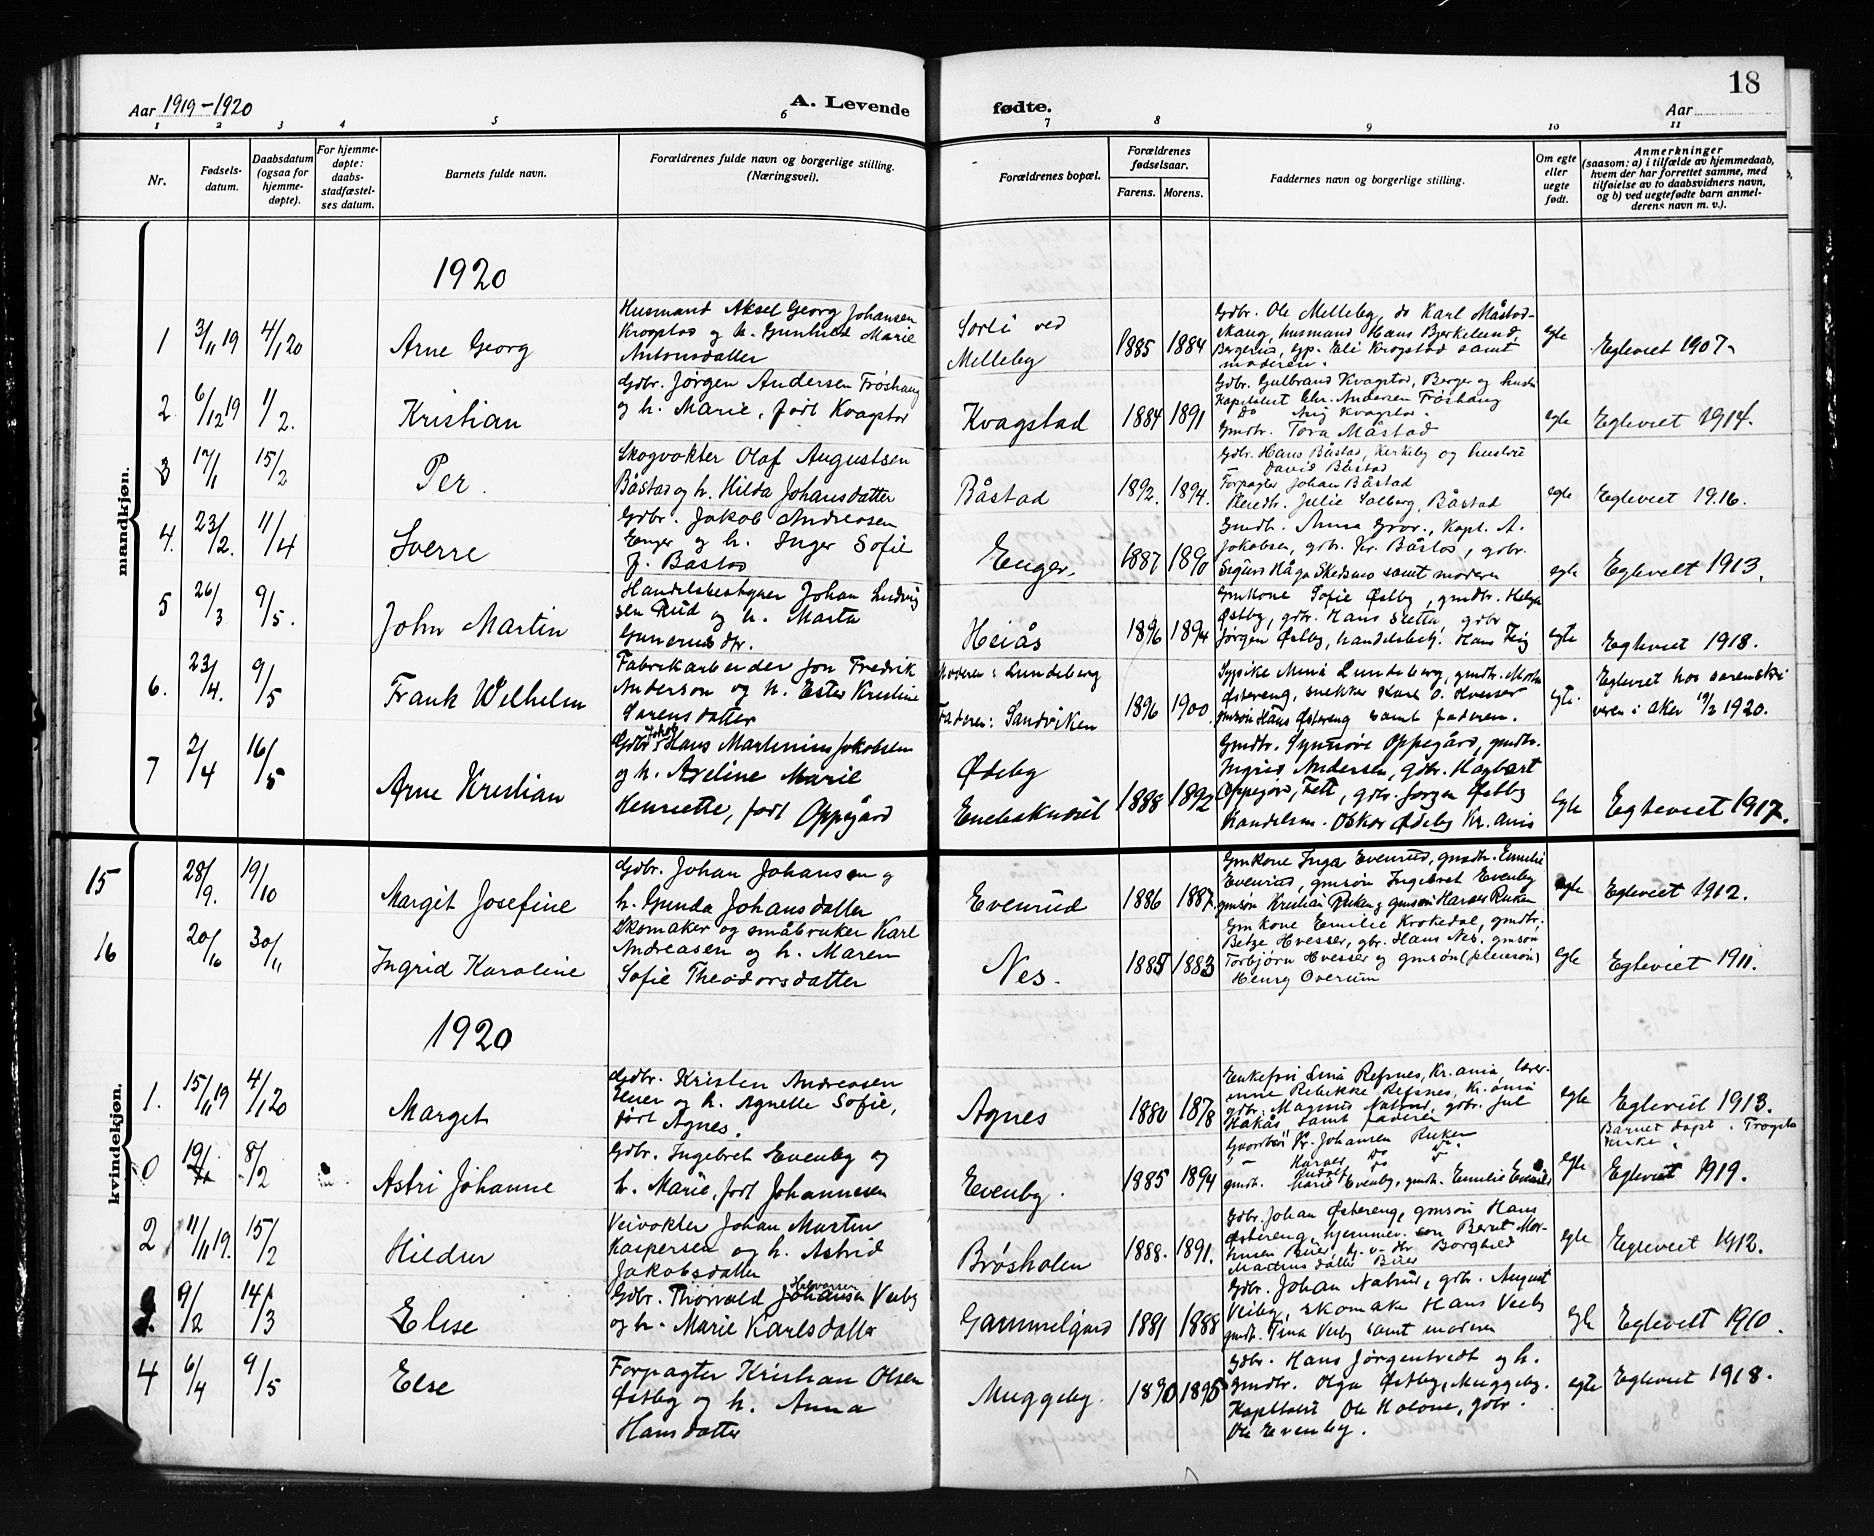 18
Aar 1919-1920
A. Levende
fødte.
Aar
1 2 3 4 5 6 7 8 9 10 11
Nr.
Fødsels-
datum.
Daabsdatum
(ogsaa for
hjemme-
døpte).
For hjemme-
døpte:
daabs-
stadfæstel-
ses datum.
Barnets fulde navn.
Forældrenes fulde navn og borgerlige stilling.
(Næringsvei).
Forældrenes bopæl.
Forældrenes
fødselsaar.
Farens. Morens.
Faddernes navn og borgerlige stilling.
Om egte
eller
uegte
født.
Anmerkninger
(saasom: a) i tilfælde av hjemmedaab,
hvem der har forrettet samme, med
tilføielse av to daabsvidners navn,
og b) ved uegtefødte barn anmel-
derens navn m. v.).
mandkjøn.
1920
1 3/11 19 4/1 20 Arne Georg
Husmand Aksel Georg Johansen
Krogstad og h. Gunhild Marie
Antonsdatter
Sorli ved
Melleby
1885 1884
Gdbr. Ole Melleby, do Karl Måstad-
Haug, husmand Hans Bjerkelund,
Bergerud, gp. Eli Krogstad samt
moderen.
egte Egteviet 1907
2 6/12 19 1/2. Kristian
Gdbr. Jørgen Andersen Frøshaug
og h. Marie, født Kvagstad
Kvagstad 1884 1891
Gdbr. Gulbrand Kvagstad, Berger og hustru
Kapitalist Chr. Andersen Frøshaug
Do Aug Kvagstad.
Gmdtr. Tora Måstad
egte Egteviet 1914.
3 17/1 15/2 Per.
Skogvokter Olaf Augustsen
Båstad og h. Hilda Johansdatter
Båstad 1892. 1894.
Gdbr. Hans Båstad, Kirkeby og hustru
David Båstad
Forpagter Johan Båstad
Meiedtr. Julie Solberg, Båstad
egte Egteviet 1916.
4. 23/2. 11/4 Sverre
Gdbr. Jakob Andreasen
Enger og h. Inger Sofie
f. Båstad
Enger. 1887 1890
Gmdtr. Anna Grav., Kapt. A.
Jakobsen, gdbr. Kr. Båstad, gdbr.
Sigurd Håga Skedsmo samt moderen
egte Egteviet 1913.
5 26/3 9/5. John Martin
Handelsbestyrer Johan Ludvig
sen Rud og h. Marta
Gunerusdtr.
Heiås 1896 1894
Gmkone Sofie Østby, gmdtr. Helga
Østby, gdbr. Hans Sletta, gdbr
Jørgen Østby, handelsbetj. Hans Teig
egte Egteviet 1918.
6. 23/4. 9/5 Frank Wilhelm
Fabrikarbeider Jon Fredrik
Anderson og h. Ester Kristine
Sørensdatter
Moderen: Lundeberg
Faderen: Sandviken
1896 1900
Sypike Mina Lundeberg, gmdtr. Marta
Østereng, snekker Karl O. Hvesser
gmsøn Hans Østereng samt faderen.
egte. Egteviet hos sorenskri
veren i Aker 19/2 1920.
7 2/4 16/5 Arne Kristian
Jakob
Gdbr. Hans Martinius Jakobsen
og h. Aveline Marie
Henriette, født Oppegård
Ødeby
Enebakneset
1888 1892
Gmdtr. Synnøve Oppegård, gmdtr.
Ingrid Andersen, gdbr. Hagbart
Oppegård, Fett, gdbr. Jørgen Østby
Handelsm. Oskar Ødeby Kr.ania
egte Egteviet 1917.
kvindekjøn.
15 28/9. 19/10 Margit Josefine
Gdbr. Johan Johansen og
h. Gunda Johansdatter
Evenrud 1886 1887.
Gmkone Inga Evenrud, gmdtr. Emilie
Evenrud, gmsøn Ingebret Evenby
gmsøn Kristian Ruken og gmsøn Harald Ruken
egte Egteviet 1912.
16 20/10 30/11 Ingrid Karoline
Skomaker og småbruker Karl
Andreasen og h. Maren
Sofie Theodorsdatter
Nes. 1885 1883
Gmkone Emilie Krokedal, gmdtr.
Betze Hvesser, gbr. Hans Nes. gmsøn
Torbjørn Hvesser og gmsøn (pleiesøn)
Henry Overum
egte Egteviet 1911.
1920
1. 15/11 19 4/1 20 Margit
Gdbr. Kristen Andreasen
og h. Agnette Sofie,
født Agnes.
Agnes 1880 1878
Enkefru Lina Refsnes, Kr.ania, lærer-
inne Rebekke Refsnes, Kr.ania
gdbr. Magnus Natrud, gdbr. Jul
Håkås samt faderen
egte Egteviet 1913.
0 19/ 8/2 Astri Johanne
Gdbr. Ingebret Evenby og
h. Marie, født Johannesen
Evenby. 1885 1894
Gaardbr. Kr. Johansen Ruken
Harald do do.
Rudolf do do
gmdt. Marie Evenby, gmdt. Emilie
egte Barnet døpt i Trøgstad
kirke.
Egteviet 1919.
2 11/11 19. 15/2 Hildur
Veivokter Johan Martin
Kaspersen og h. Astrid
Jakobsdatter
Brøsholen 1888. 1891.
Gdbr. Johan Østereng, gmsøn Hans
Østereng, hjemmev. søn Bernt Mar-
tinsen Buer, h.v. dtr. Borghild
Martinsdatter Buer
egte Egteviet 1912.
9/2 14/3 Elise
Halvorsen
Gdbr. Thorvald Johansen Veiby
og h. Marie Karlsdatter
Gammelgård 1881 1888
Gdbr. Johan Natrud, gdbr. August
Veiby, skomake Hans Veiby
gmdt. Tina Veiby samt moderen
egte Egteviet 1910.
4 6/4 9/5 Else
Forpagter Kristian Olsen
Østby og h. Anna
Hansdatter
Muggeby. 1890 1895
Gdbr. Hans Jørgentvedt og h.
Gmdtr. Olga Østby, Muggeby.
Kapitalist Ole Holone, gdbr.
Ole Evenby.
egte Egteviet 1918.